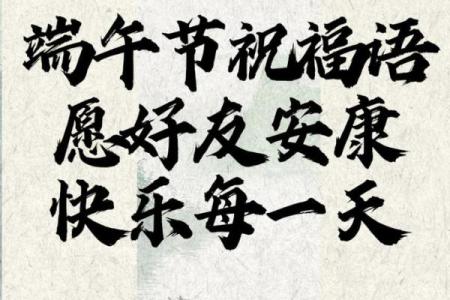 端午节祝福语
愿好友安康
快乐每一天